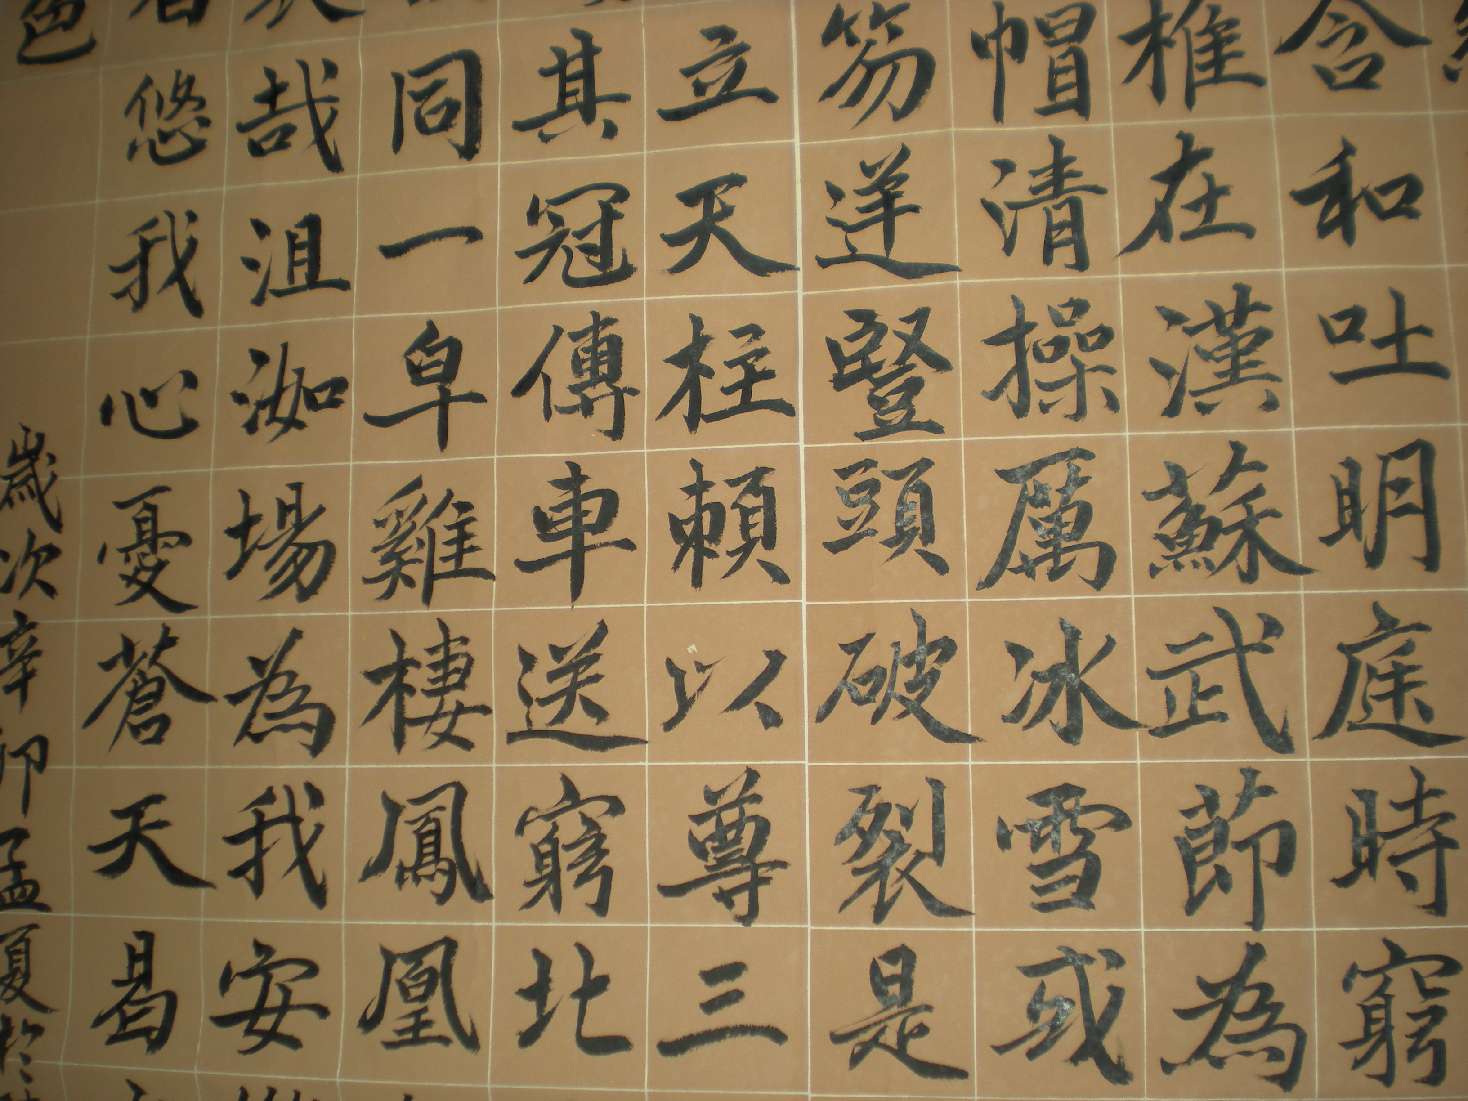 含和吐明庭時窮
椎在漢蘇武節為
帽清操厲冰雪或
笏逆豎頭破裂是
立天柱賴以尊三
其冠傳車送窮北
同一皁雞棲鳳凰
哉沮洳場為我安
悠我心憂蒼天曷
色
歲次辛卯孟夏於